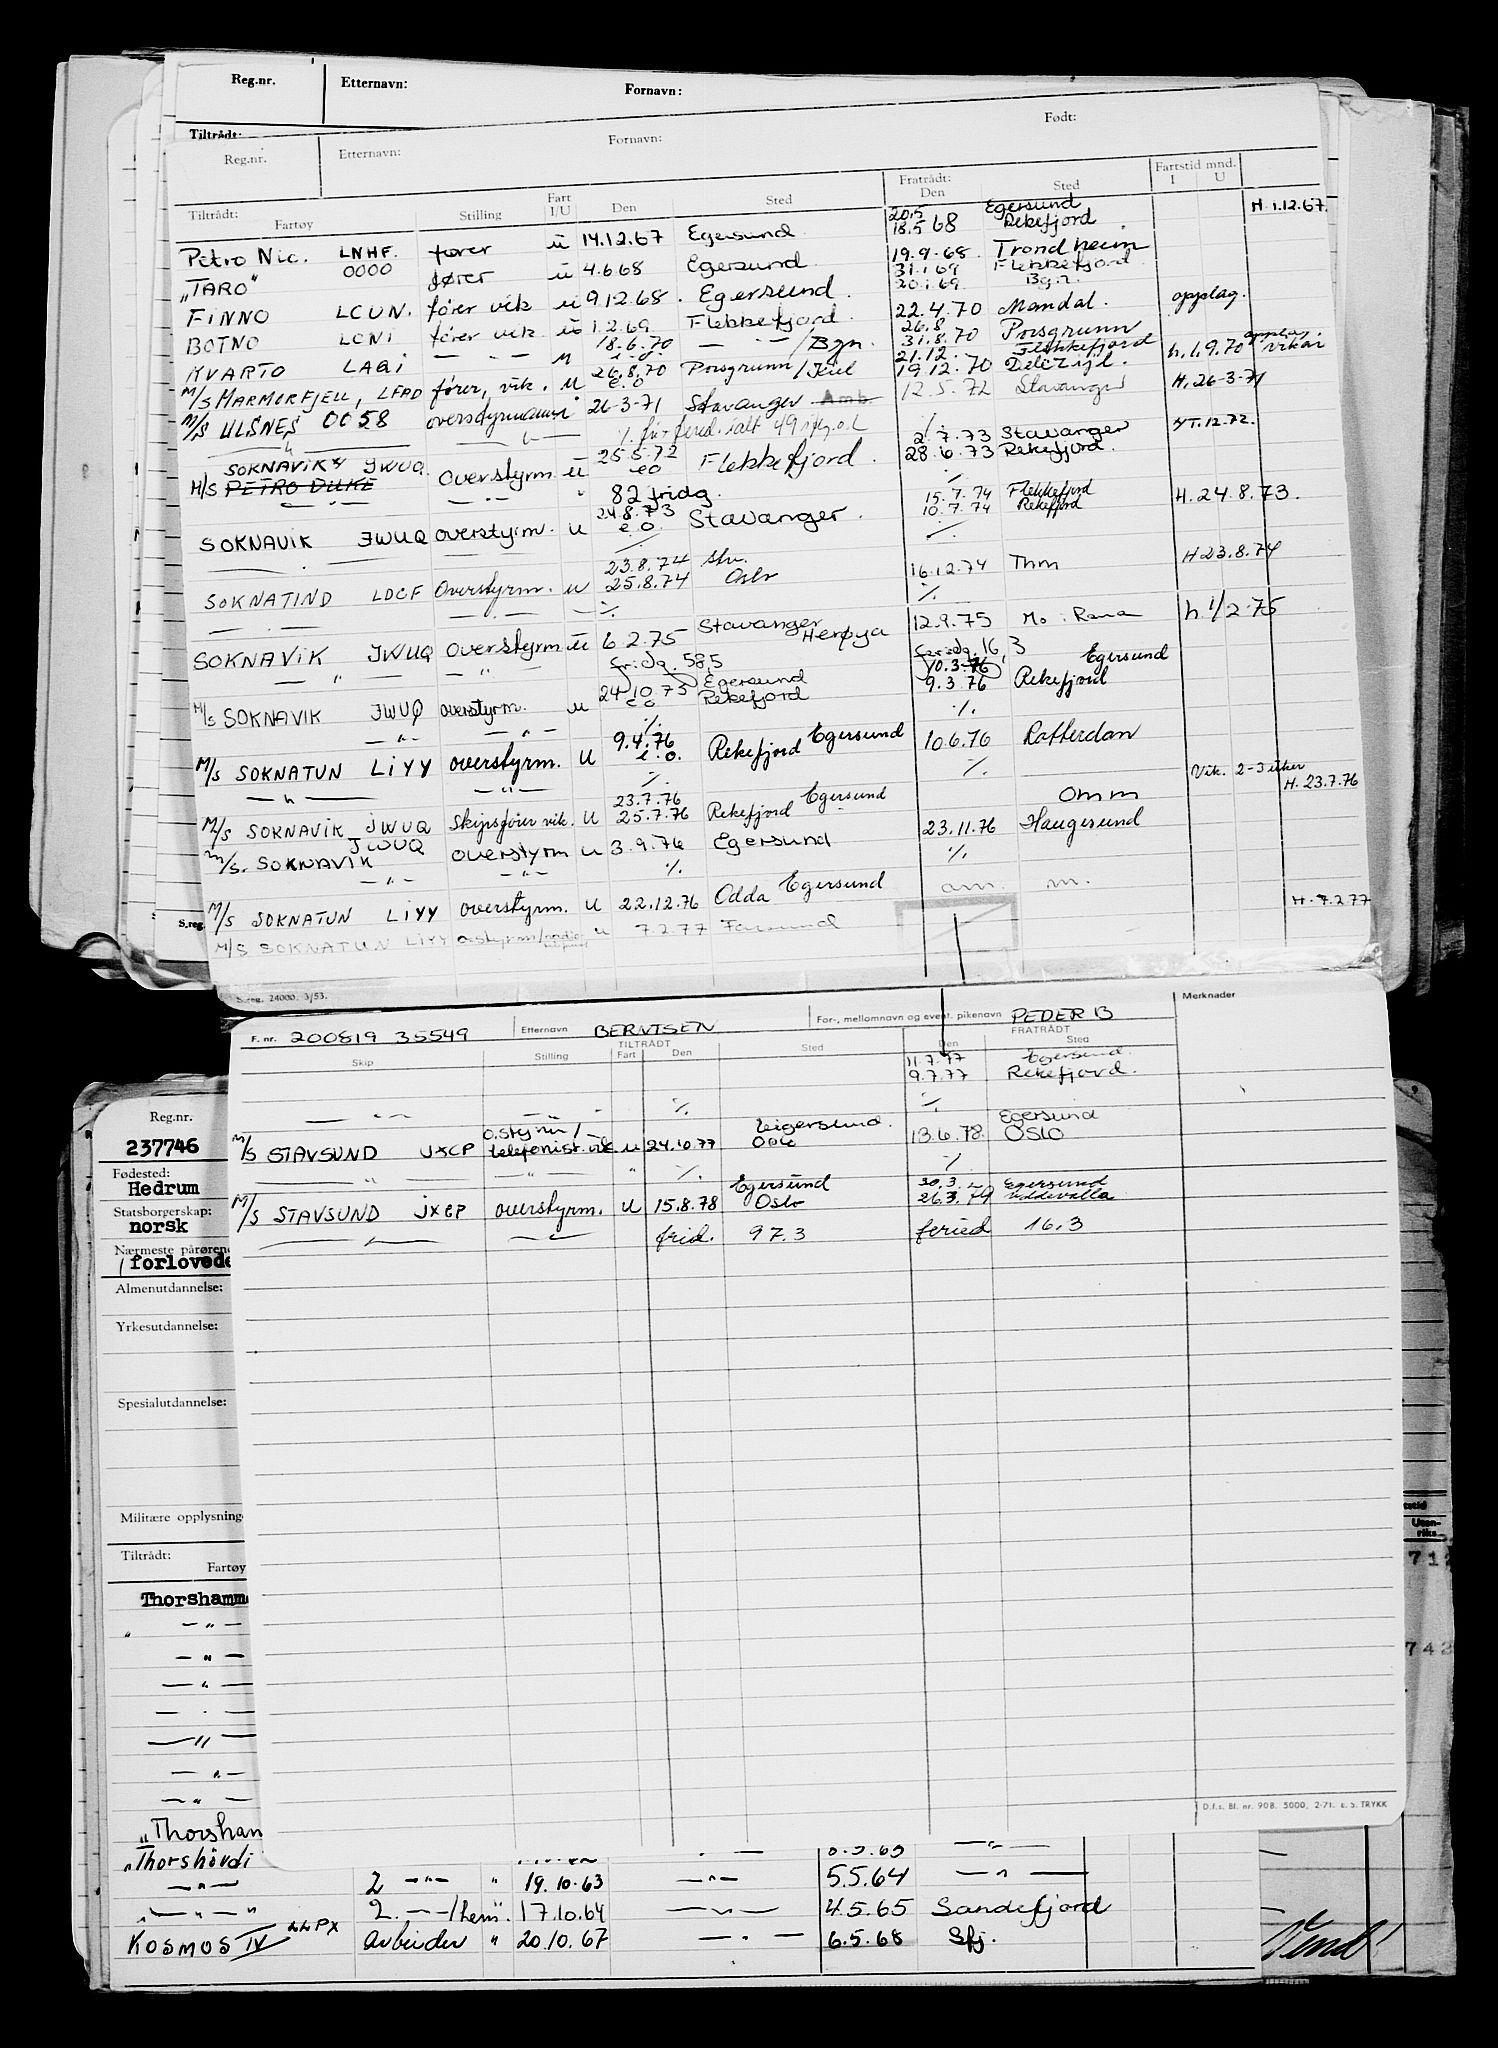 Reg.nr. Etternavn: Fornavn:
Tiltrådt:
Reg.nr. Etternavn: Fornavn: Født:
Tiltrådt: Fratrådt: Fartstid mnd.
Fartøy Stilling Fart I/U Den Sted Den Sted I U
20.5 Egersund H. 1.12.67.
Petro Nic. LNHF. fører u 14.12.67 Egersund 18.5 68 Rekefjord
"TARO" 0000 fører u 4.6.68 Egersund 19.9.68 Trondheim
31.1 69 Flekkefjord
FINNO LCUN. fører vik u 9.12.68. Egersund. 20.1.69
BOTNO LCNI fører vik u 1.2.69 Flekkefjord. 22.4.70 Mandal. opplag.
18.6.70 26.8
KVARTO LAGI — " — u e.o. — " — / Bgn. 31.8.70 Porsgrunn
26.8.70 21.12. Flekkefjord
M/S MARMORFJELL, LFAD fører, vik. u e.o Porsgrunn / 19.12.70 Delfzijl. h. 1.9.70 vikar
M/S ULSNES 0058 overstyrmann 26-3-71 Stavanger Amb. 12.5.72 Stavanger H. 26-3-71
SOKNAVIK JWUQ 25.5.72 2.7.73 Stavanger
M/S PETRO DUKE Overstyrm. u eo Flekkefjord. 28.6.73 Rekefjord.
— " — 82 fridg.
24.8.73 15.7.74 Flekkefjord
SOKNAVIK JWUQ overstyrm. u e.o. Stavanger. 10.7.74 Rekefjord H. 24.8.73.
23.8.74
SOKNATIND LDCF Overstyrm. u 25.8.74 Oslo 16.12.74 Thm H 23.8.74
Stavanger
SOKNAVIK JWUQ overstyrm u 6 2.75 Herøya 12.9.75 Mo i Rana h. 1/2-75
— " — — " — fridg. 58,5 16,3
24.10.75 Egersund 10.3.76 Egersund
M/S SOKNAVIK JWUQ overstyrm. u e.o Rekefjord 9.3.76 Rekefjord
— " — — " — %. %.
9.4.76
M/S SOKNATUN LIYY overstyrm. u e.o. Rekefjord Egersund 10.6.76 Rotterdam
— " — — " — %. %. Vik. 2-3 uker
23.7.76 omm H. 23.7.76
M/S SOKNAVIK JWUQ Skipsfører vik. u 25.7.76 Rekefjord Egersund
M/S. SOKNAVIK JWUQ overstyrm u 3.9.76 Egersund 23.11.76 Haugesund
— " — — " — %. %.
M/S SOKNATUN LIYY overstyrm. u 22.12.76 Odda Egersund om. m. H. 7.2.77
M/S SOKNATUN LIYY u 7.2.77 Farsund
S.reg. 24000. 3/53.
S.reg.
F. nr. 200819 35549 Etternavn BERNTSEN For-, mellomnavn og event. pikenavn PEDER B Merknader
TILTRÅDT FRATRÅDT
Skip Stilling Fart Den Sted Den Sted
11.7.77 Egersund.
9.7.77 Rekefjord.
— " — %. %.
Egersund
M/S STAVSUND JXCP telefonist.vik u 24.10.77 Oslo 13.6.78. OSLO
— " — — " — " %. %.
Egersund 30.3. Egersund
M/S STAVSUND JXCP overstyrm. u 15.8.78 Oslo 26.3.79 Uddevalla
frid. 97.3 feried 16.3
D.f.s. Bl. nr. 908. 5000. 2-71. E.S. TRYKK
Reg.nr.
237746
Fødested:
Hedrum
Statsborgerskap:
norsk
Nærmeste pårørende
forlovede
Almenutdannelse:
Yrkesutdannelse:
Spesialutdannelse:
Militære opplysning
Tiltrådt:
Fartøy
Thorshamm
— " —
— " —
— " —
— " —
— " —
— " —
— " —
"Thorshan
"Thorshövdi — " —
— " — 2 — " — " 19.10.63 — " — 5.5.64 — " —
— " — " 2. — " — 17.10.64 — " — 4.5.65 Sandefjord
KOSMOS IV LLPX arbeider " 20.10.67 — " — 6.5.68 Sfj.
Uten-
riks
712
742
Vend!